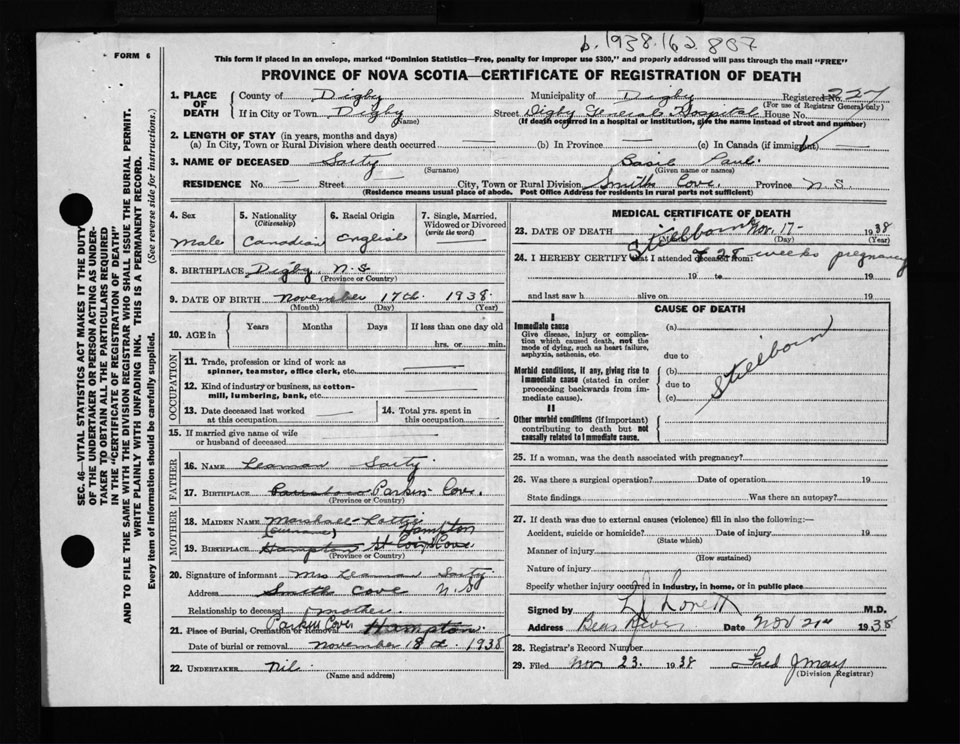 b. 1938.162.807
FORM 6
This form if placed in an envelope, marked "Dominion Statistics—Free, penalty for improper use $300," and properly addressed will pass through the mail "FREE"
PROVINCE OF NOVA SCOTIA—CERTIFICATE OF REGISTRATION OF DEATH
SEC. 46—VITAL STATISTICS ACT MAKES IT THE DUTY
OF THE UNDERTAKER OR PERSON ACTING AS UNDER-
TAKER TO OBTAIN ALL THE PARTICULARS REQUIRED
IN THE "CERTIFICATE OF REGISTRATION OF DEATH"
AND TO FILE THE SAME WITH THE DIVISION REGISTRAR WHO SHALL ISSUE THE BURIAL PERMIT.
WRITE PLAINLY WITH UNFADING INK. THIS IS A PERMANENT RECORD.
Every item of information should be carefully supplied. (See reverse side for instructions.)
1. PLACE OF DEATH
County of Digby Municipality of Digby Registered No. 227
(For use of Registrar General only)
If in City or Town Digby Street Digby General Hospital House No.
(Name) (If death occurred in a hospital or institution, give the name instead of street and number)
2. LENGTH OF STAY (in years, months and days)
(a) In City, Town or Rural Division where death occurred — (b) In Province — (c) In Canada (if immigrant) —
3. NAME OF DECEASED Sarty Basil Paul.
(Surname) (Given name or names)
RESIDENCE No. — Street — City, Town or Rural Division Smiths Cove. Province N.S.
(Residence means usual place of abode. Post Office Address for residents in rural parts not sufficient)
4. Sex 5. Nationality (Citizenship) 6. Racial Origin 7. Single, Married, Widowed or Divorced (write the word)
Male Canadian English —
8. BIRTHPLACE Digby N.S.
(Province or Country)
9. DATE OF BIRTH November 17th 1938.
(Month) (Day) (Year)
10. AGE in Years Months Days If less than one day old
hrs. or min.
OCCUPATION
11. Trade, profession or kind of work as
spinner, teamster, office clerk, etc. —
12. Kind of industry or business, as cotton-
mill, lumbering, bank, etc. —
13. Date deceased last worked at this occupation — 14. Total yrs. spent in this occupation —
15. If married give name of wife
or husband of deceased
FATHER
16. NAME Leaman Sarty
17. BIRTHPLACE Parkers Cove.
(Province or Country)
MOTHER
18. MAIDEN NAME Marshall Lottie
(Surname) Hampton
19. BIRTHPLACE Hampton
(Province or Country)
20. Signature of informant Mrs Leaman Sarty
Address Smith Cove N.S
Relationship to deceased mother.
Parkers Cove
21. Place of Burial, Cremation or Removal Hampton.
Date of burial or removal November 18th 1938
22. UNDERTAKER Nil.
(Name and address)
MEDICAL CERTIFICATE OF DEATH
23. DATE OF DEATH Stillborn Nov. 17- 1938
(Day) (Year)
24. I HEREBY CERTIFY that I attended deceased from: 28 weeks pregnancy
19 to 19
and last saw h alive on 19
CAUSE OF DEATH
I
Immediate cause
Give disease, injury or complica-
tion which caused death, not the
mode of dying, such as heart failure,
asphyxia, asthenia, etc.
(a)
due to
Morbid conditions, if any, giving rise to
immediate cause (stated in order
proceeding backwards from im-
mediate cause).
(b)
due to
(c)
Stillborn
II
Other morbid conditions (if important)
contributing to death but not
causally related to immediate cause.
25. If a woman, was the death associated with pregnancy?
26. Was there a surgical operation? Date of operation 19
State findings Was there an autopsy?
27. If death was due to external causes (violence) fill in also the following:—
Accident, suicide or homicide? Date of injury 19
(State which)
Manner of injury
(How sustained)
Nature of injury
Specify whether injury occurred in industry, in home, or in public place
Signed by L J Lovett M.D.
Address Bear River Date Nov 21st 1938
28. Registrar's Record Number
29. Filed Nov 23. 1938 Fred J May
(Division Registrar)